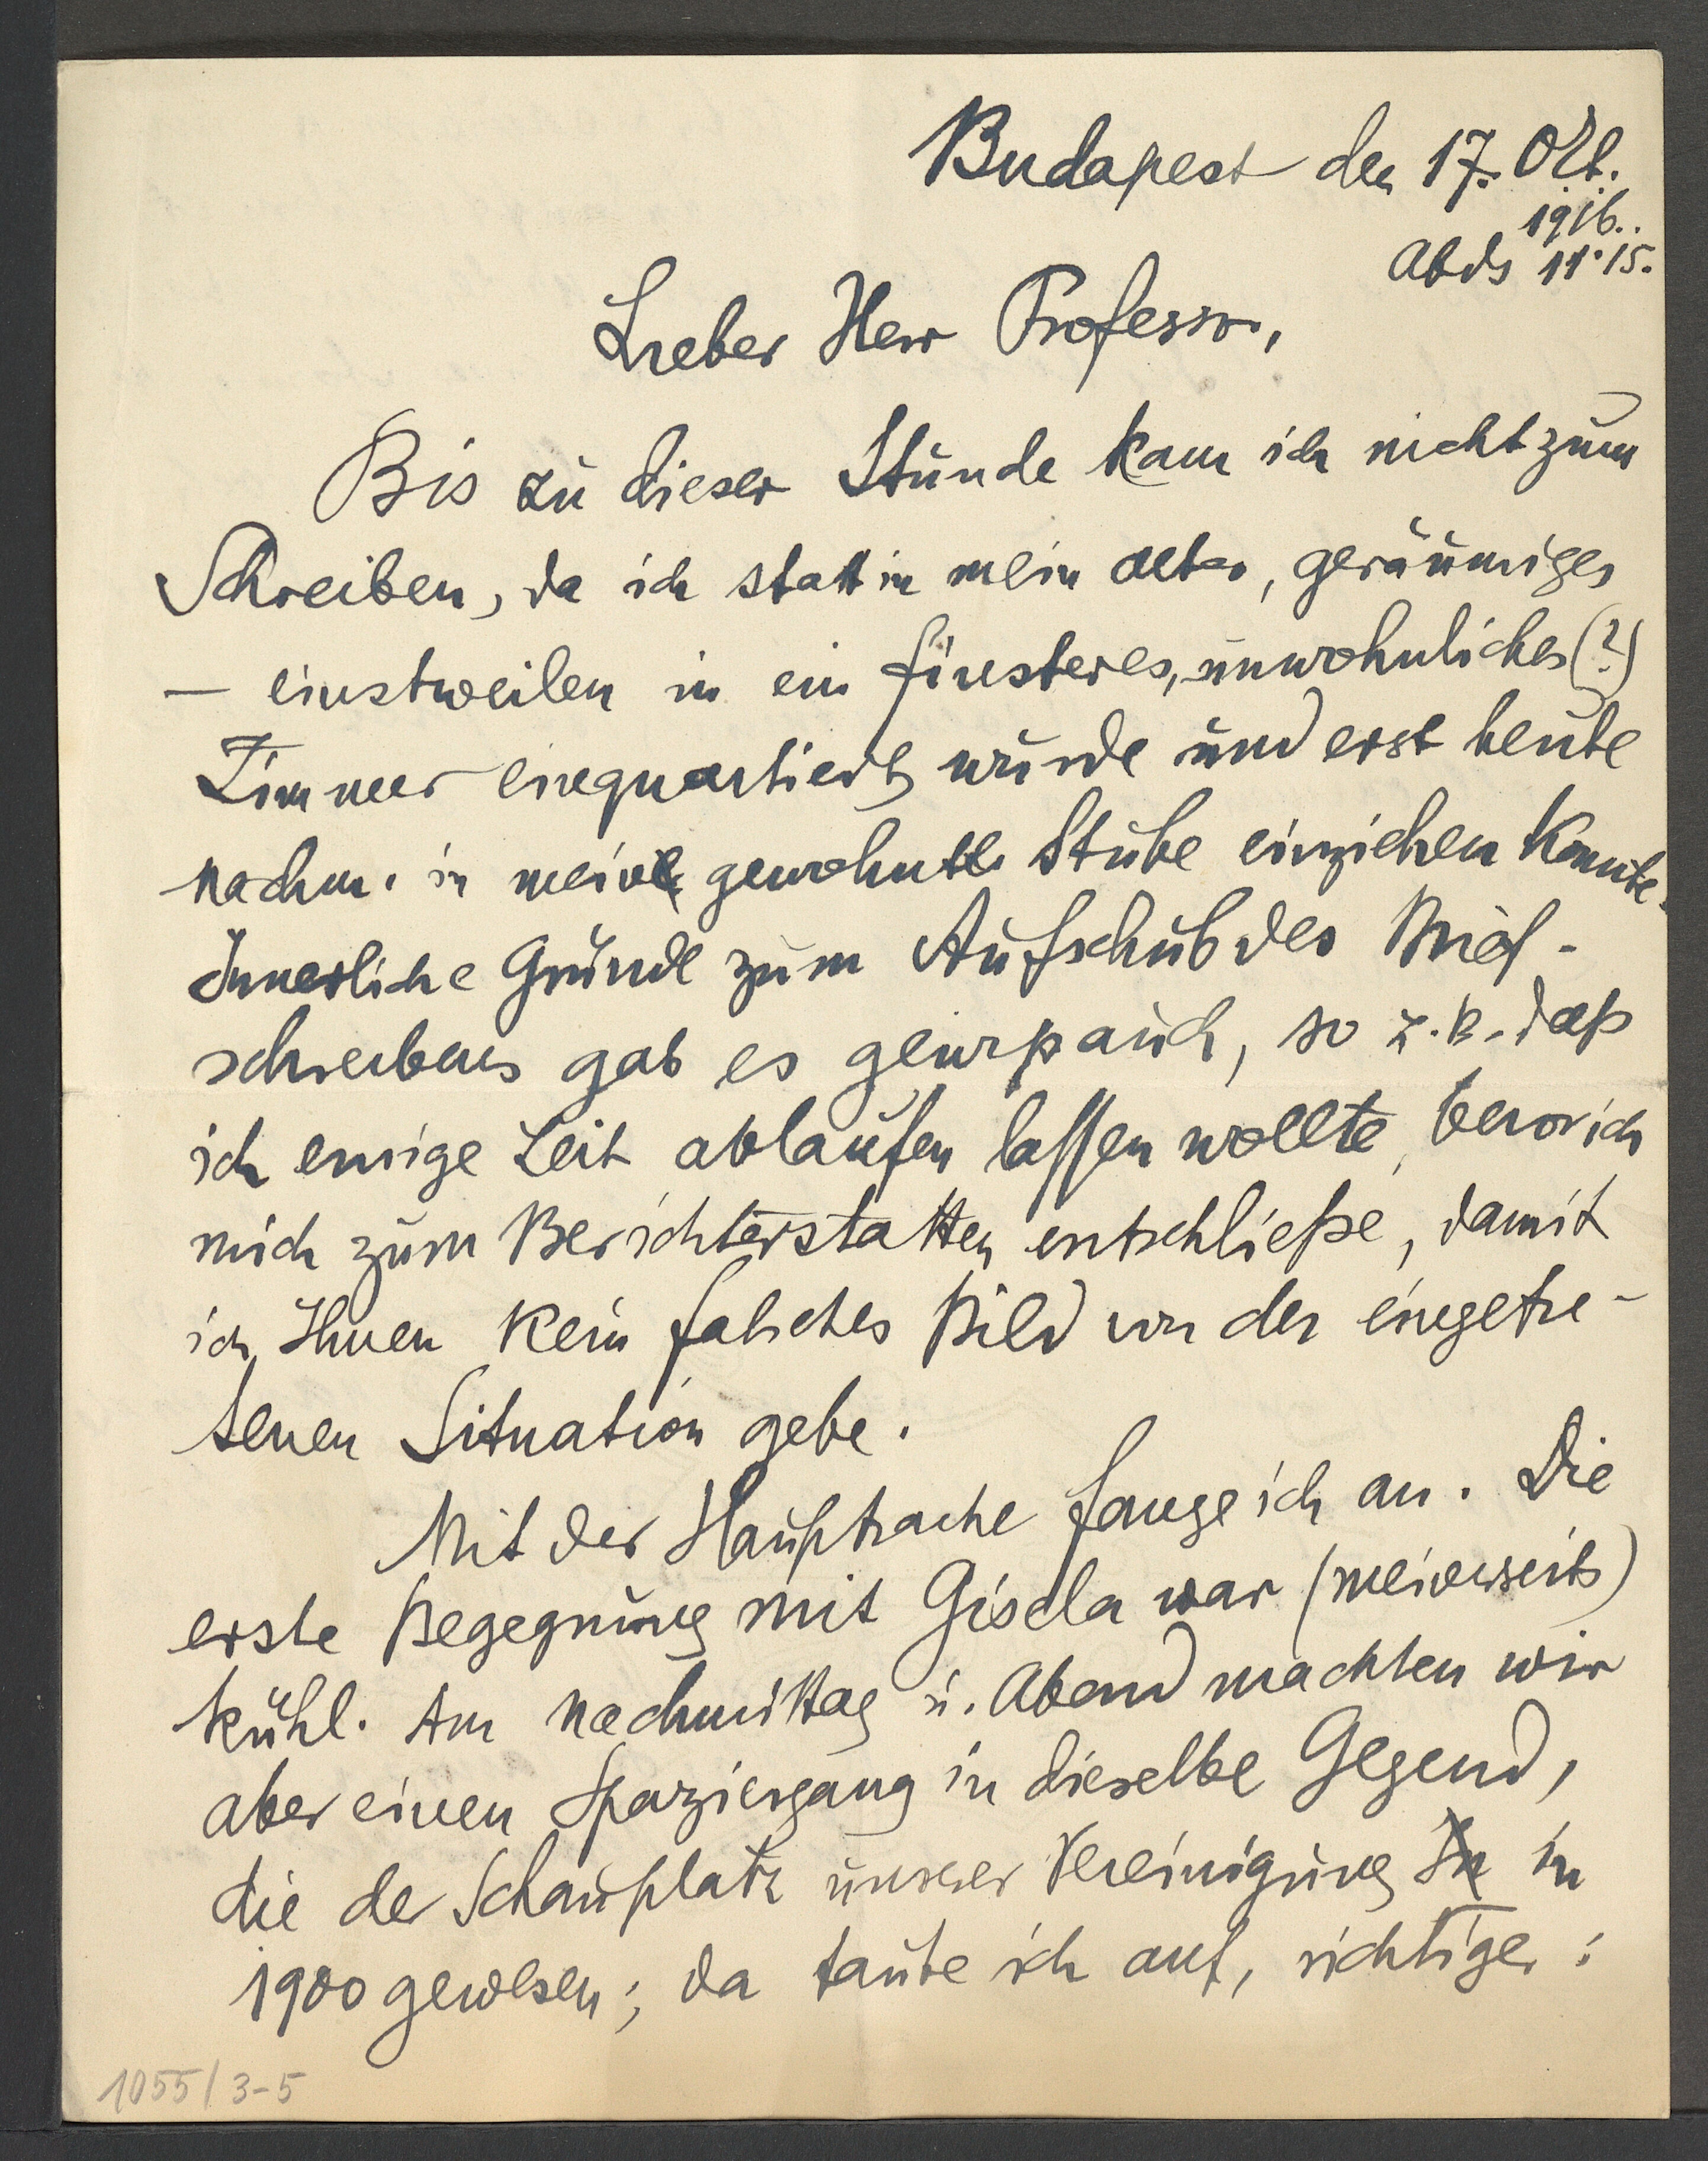 Budapest den 17. Okt.
1916..
Abds 11.15.
Lieber Herr Professor,
Bis zu dieser Stunde kam ich nicht zum
Schreiben, da ich statt in mein altes, geräumiges
— einstweilen in ein finsteres, unwohnliches (?)
Zimmer einquartiert wurde und erst heute
nachm. in meine gewohnte Stube einziehen konnte.
Innerliche Gründe zum Aufschub des Brief-
schreibens gab es gewiß auch, so z.B. daß
ich einige Zeit ablaufen lassen wollte, bevor ich
mich zum Berichterstatten entschließe, damit
ich Ihnen kein falsches Bild von der eingetre-
tenen Situation gebe.
Mit der Hauptsache fange ich an. Die
erste Begegnung mit Gisela war (meinerseits)
kühl. Am Nachmittag u. Abend machten wir
aber einen Spaziergang in dieselbe Gegend,
die der Schauplatz unserer Vereinigung in
1900 gewesen; da taute ich auf, richtiger:
1055/3-5